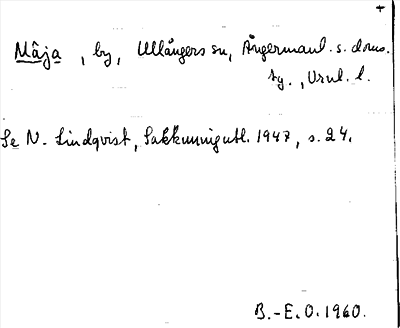 +
Måja, by, Ullångers sn, Ångermanl. s. doms.
sg., Vrnl. l.
Se N. Lindqvist, Sakkunnigutl. 1947, s. 24.
B.-E.O. 1960.